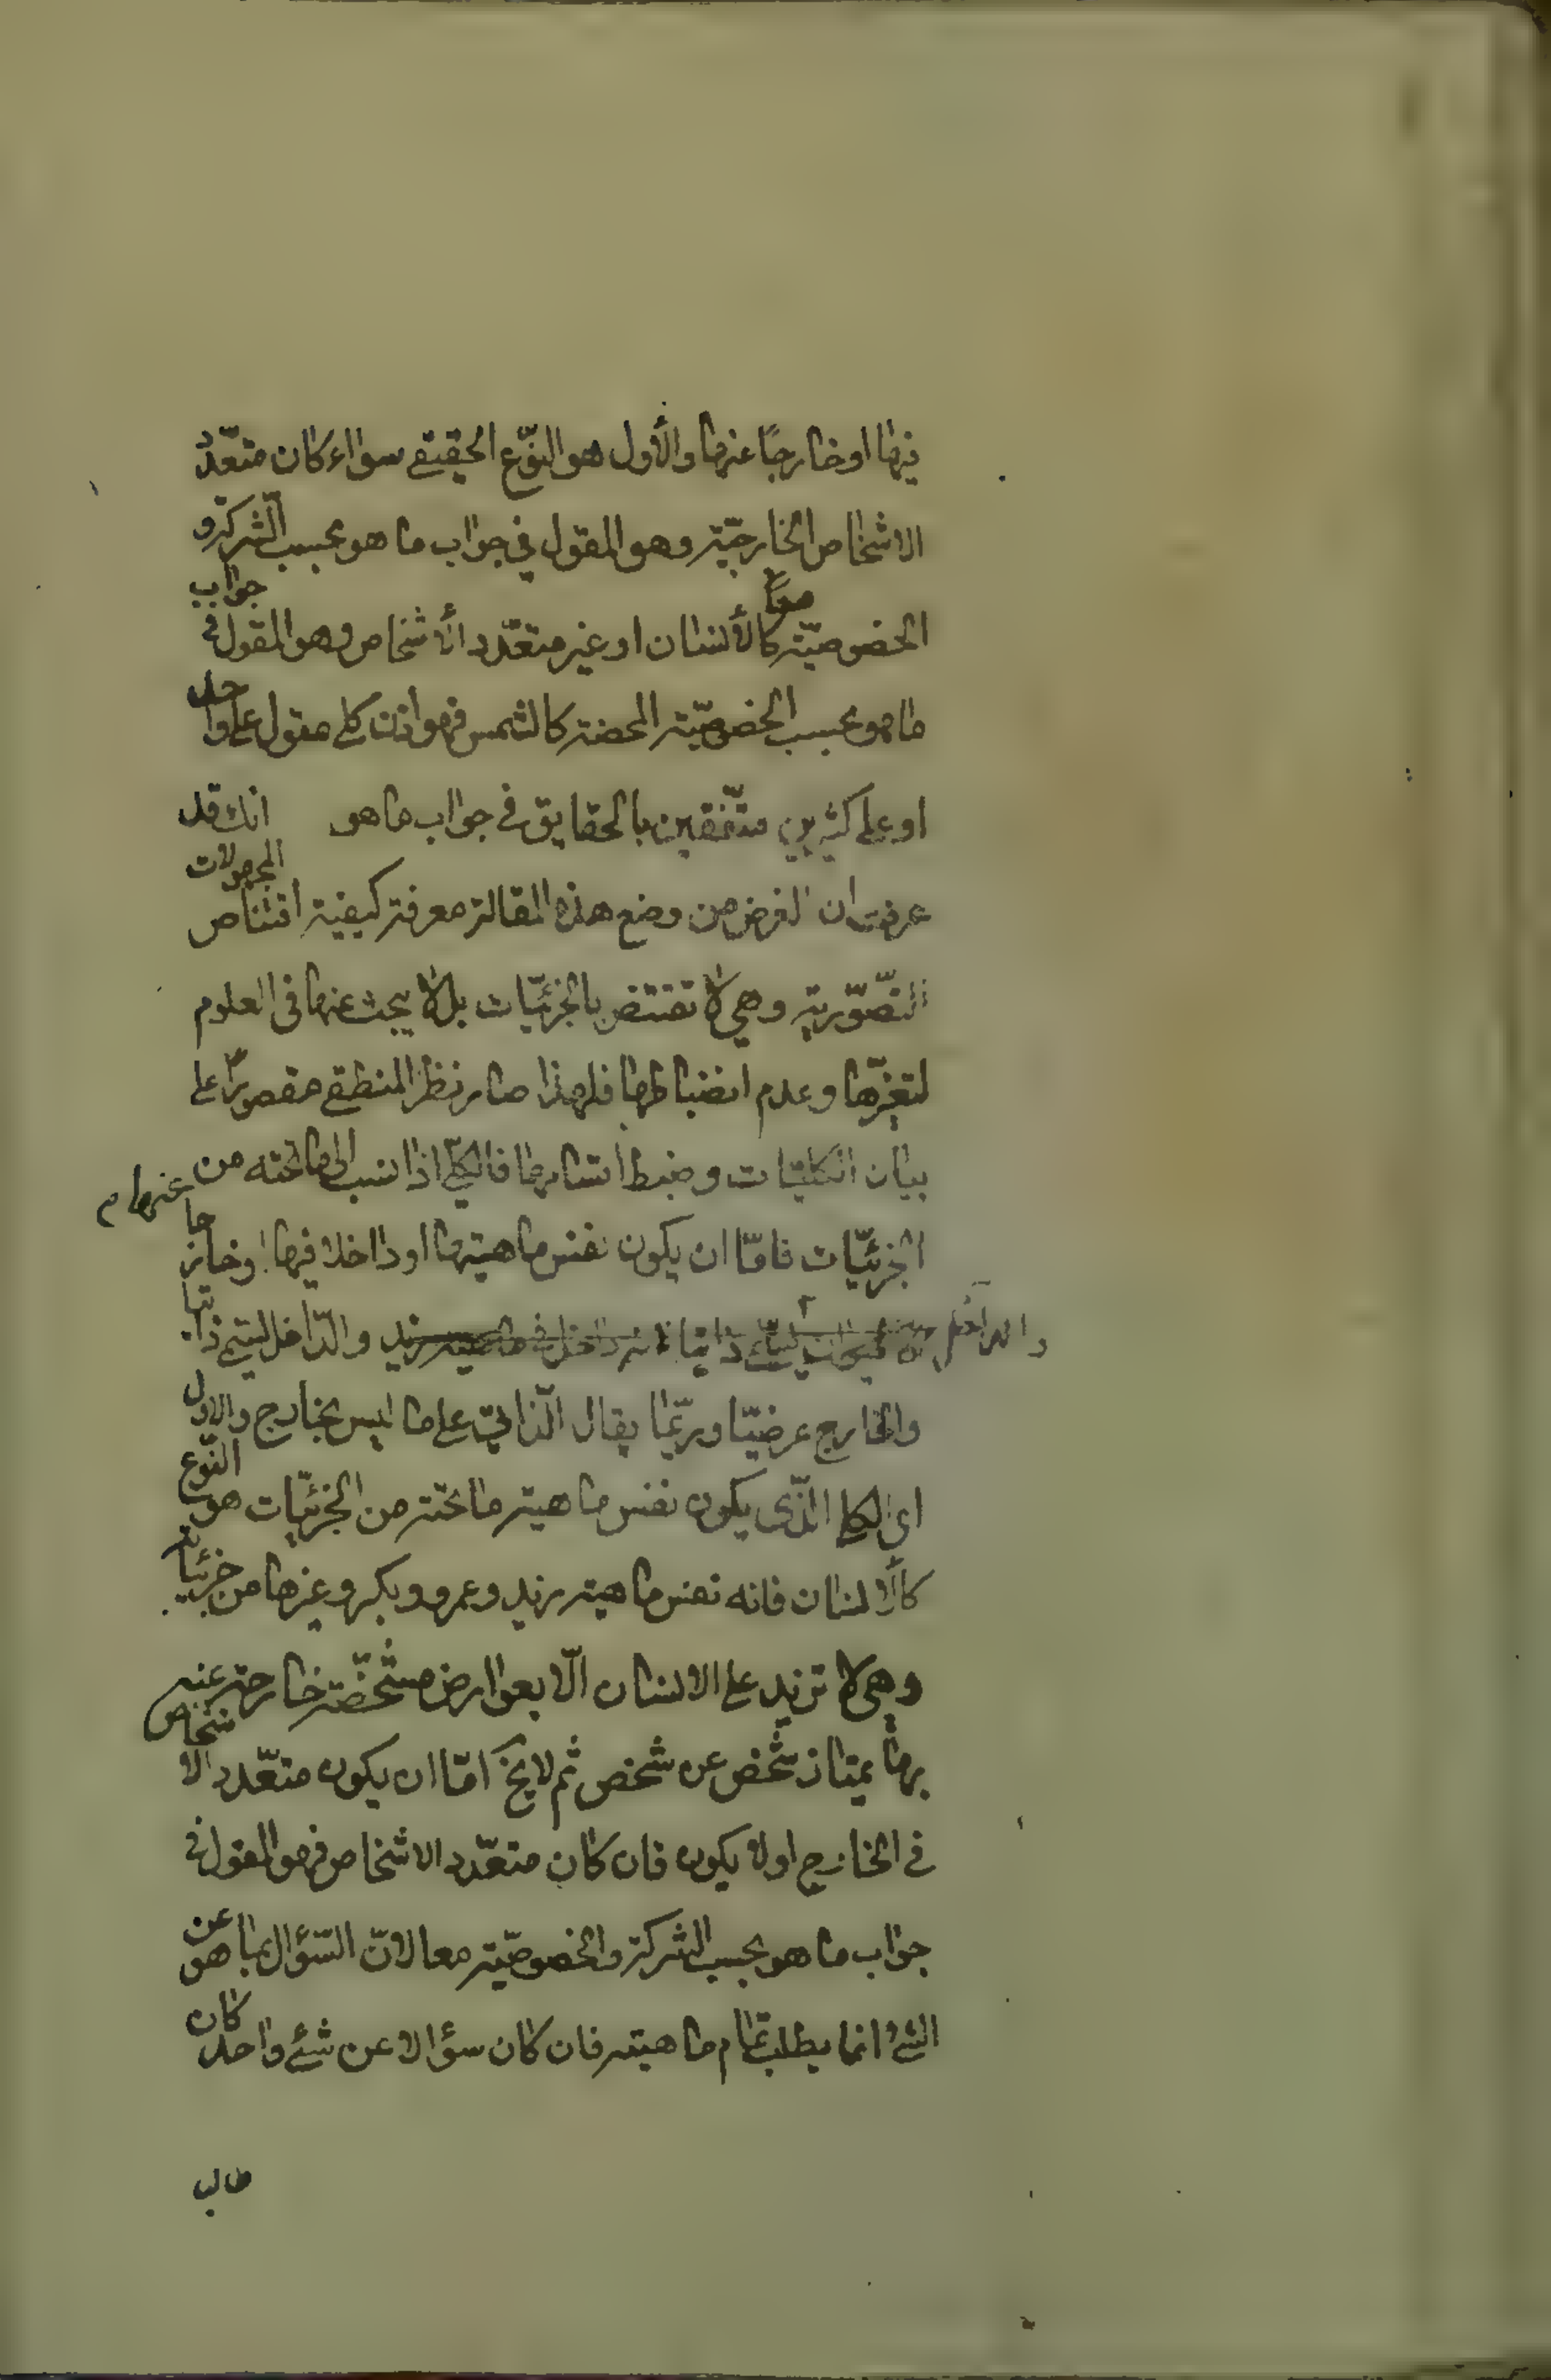 فيها او خارجًا عنها والأول هو النّوع الحقيقي سواء كان متعدّد
الاشخاص الخارجيّة وهو المقول في جواب ما هو بحسب الشركة و
الخصوصيّة معًا كالأنسان او غير متعدّد الأشخاص وهو المقول في جواب
ما هو بحسب الخصوصيّة المحضة كالشمس فهو اذن كلي مقول على واحد
او على كثيرين متّفقين بالحقايق في جواب ما هو انك قد
عرفت ان الغرض من وضع هذه المقالة معرفة كيفية اقتناص المجهولات
التصّوّرية وهي لا تقتنص بالجزئيّات بل لا يبحث عنها في العلوم
لتغيّرها وعدم انضباطها فلهذا صار نظر المنطقي مقصورًا على
بيان الكليّات وضبط اقسامها فالكلّي اذا نسب الى ما تحته من
الجزئيّات فامّا ان يكون نفس ماهيتها او داخلا فيها او خارجا عنها
والداخل يسمّى ذاتيا
والخارج عرضيّا وربّما يقال الّذاتي على ما ليس بخارج والاول
اى الكلي الّذى يكون نفس ماهية ما تحته من الجزئيّات هو النّوع
كالأنسان فانه نفس ماهية زيد وعمرو وبكر وغيرها من جزئياته
وهي لا تزيد على الانسان الّا بعوارض مشخّصة خارجة عنه
بها يمتاز شخص عن شخص ثم لا يخ امّا ان يكون متعّدد الاشخاص
في الخارج اولا يكون فان كان متعّدد الاشخاص فهو المقول في
جواب ما هو بحسب الشركة والخصوصيّة معا لانّ السّؤال بما هو عن
الشئ انما يطلب تمام ماهيته فان كان سؤالا عن شئ واحد كان
طالب